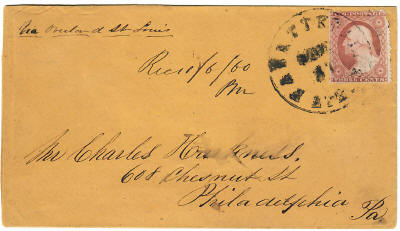 Via Overland St Louis
Rec 10/6/60
Pm
THREE CENTS
Mr Charles Harkness.
608 Chesnut St
Philadelphia Pa